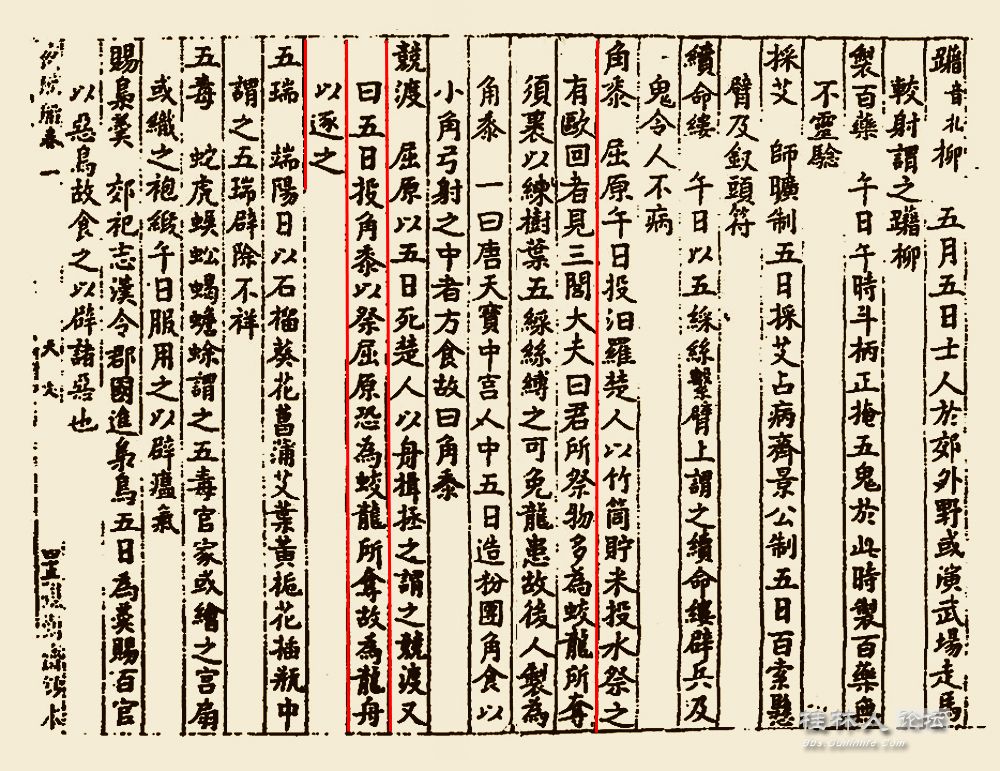 躤音札柳　五月五日士人於郊外野或演武場走馬
較射謂之躤柳
製百藥　午日午時斗柄正掩五鬼於此時製百藥無
不靈驗
採艾　師曠制五日採艾占病齊景公制五日百索懸
臂及釵頭符
續命縷　午日以五綵絲繫臂上謂之續命縷辟兵及
鬼令人不病
角黍　屈原午日投汨羅楚人以竹筒貯米投水祭之
有歐回者見三閭大夫曰君所祭物多為蛟龍所奪
須裹以練樹葉五綵絲縛之可免龍患故後人製為
角黍　一曰唐天寶中宮人中五日造粉團角食以
小角弓射之中者方食故曰角黍
競渡　屈原以五日死楚人以舟揖拯之謂之競渡又
曰五日投角黍以祭屈原恐為蛟龍所奪故為龍舟
以逐之
五瑞　端陽日以石榴葵花菖蒲艾葉黃梔花插瓶中
謂之五瑞辟除不祥
五毒　蛇虎蜈蚣蝎蟾蜍謂之五毒官家或繪之宮扇
或織之袍緞午日服用之以辟瘟氣
賜梟羹　郊祀志漢令郡國進梟鳥五日為羹賜百官
以惡鳥故食之以辟諸惡也
卷一
桂林人 论坛